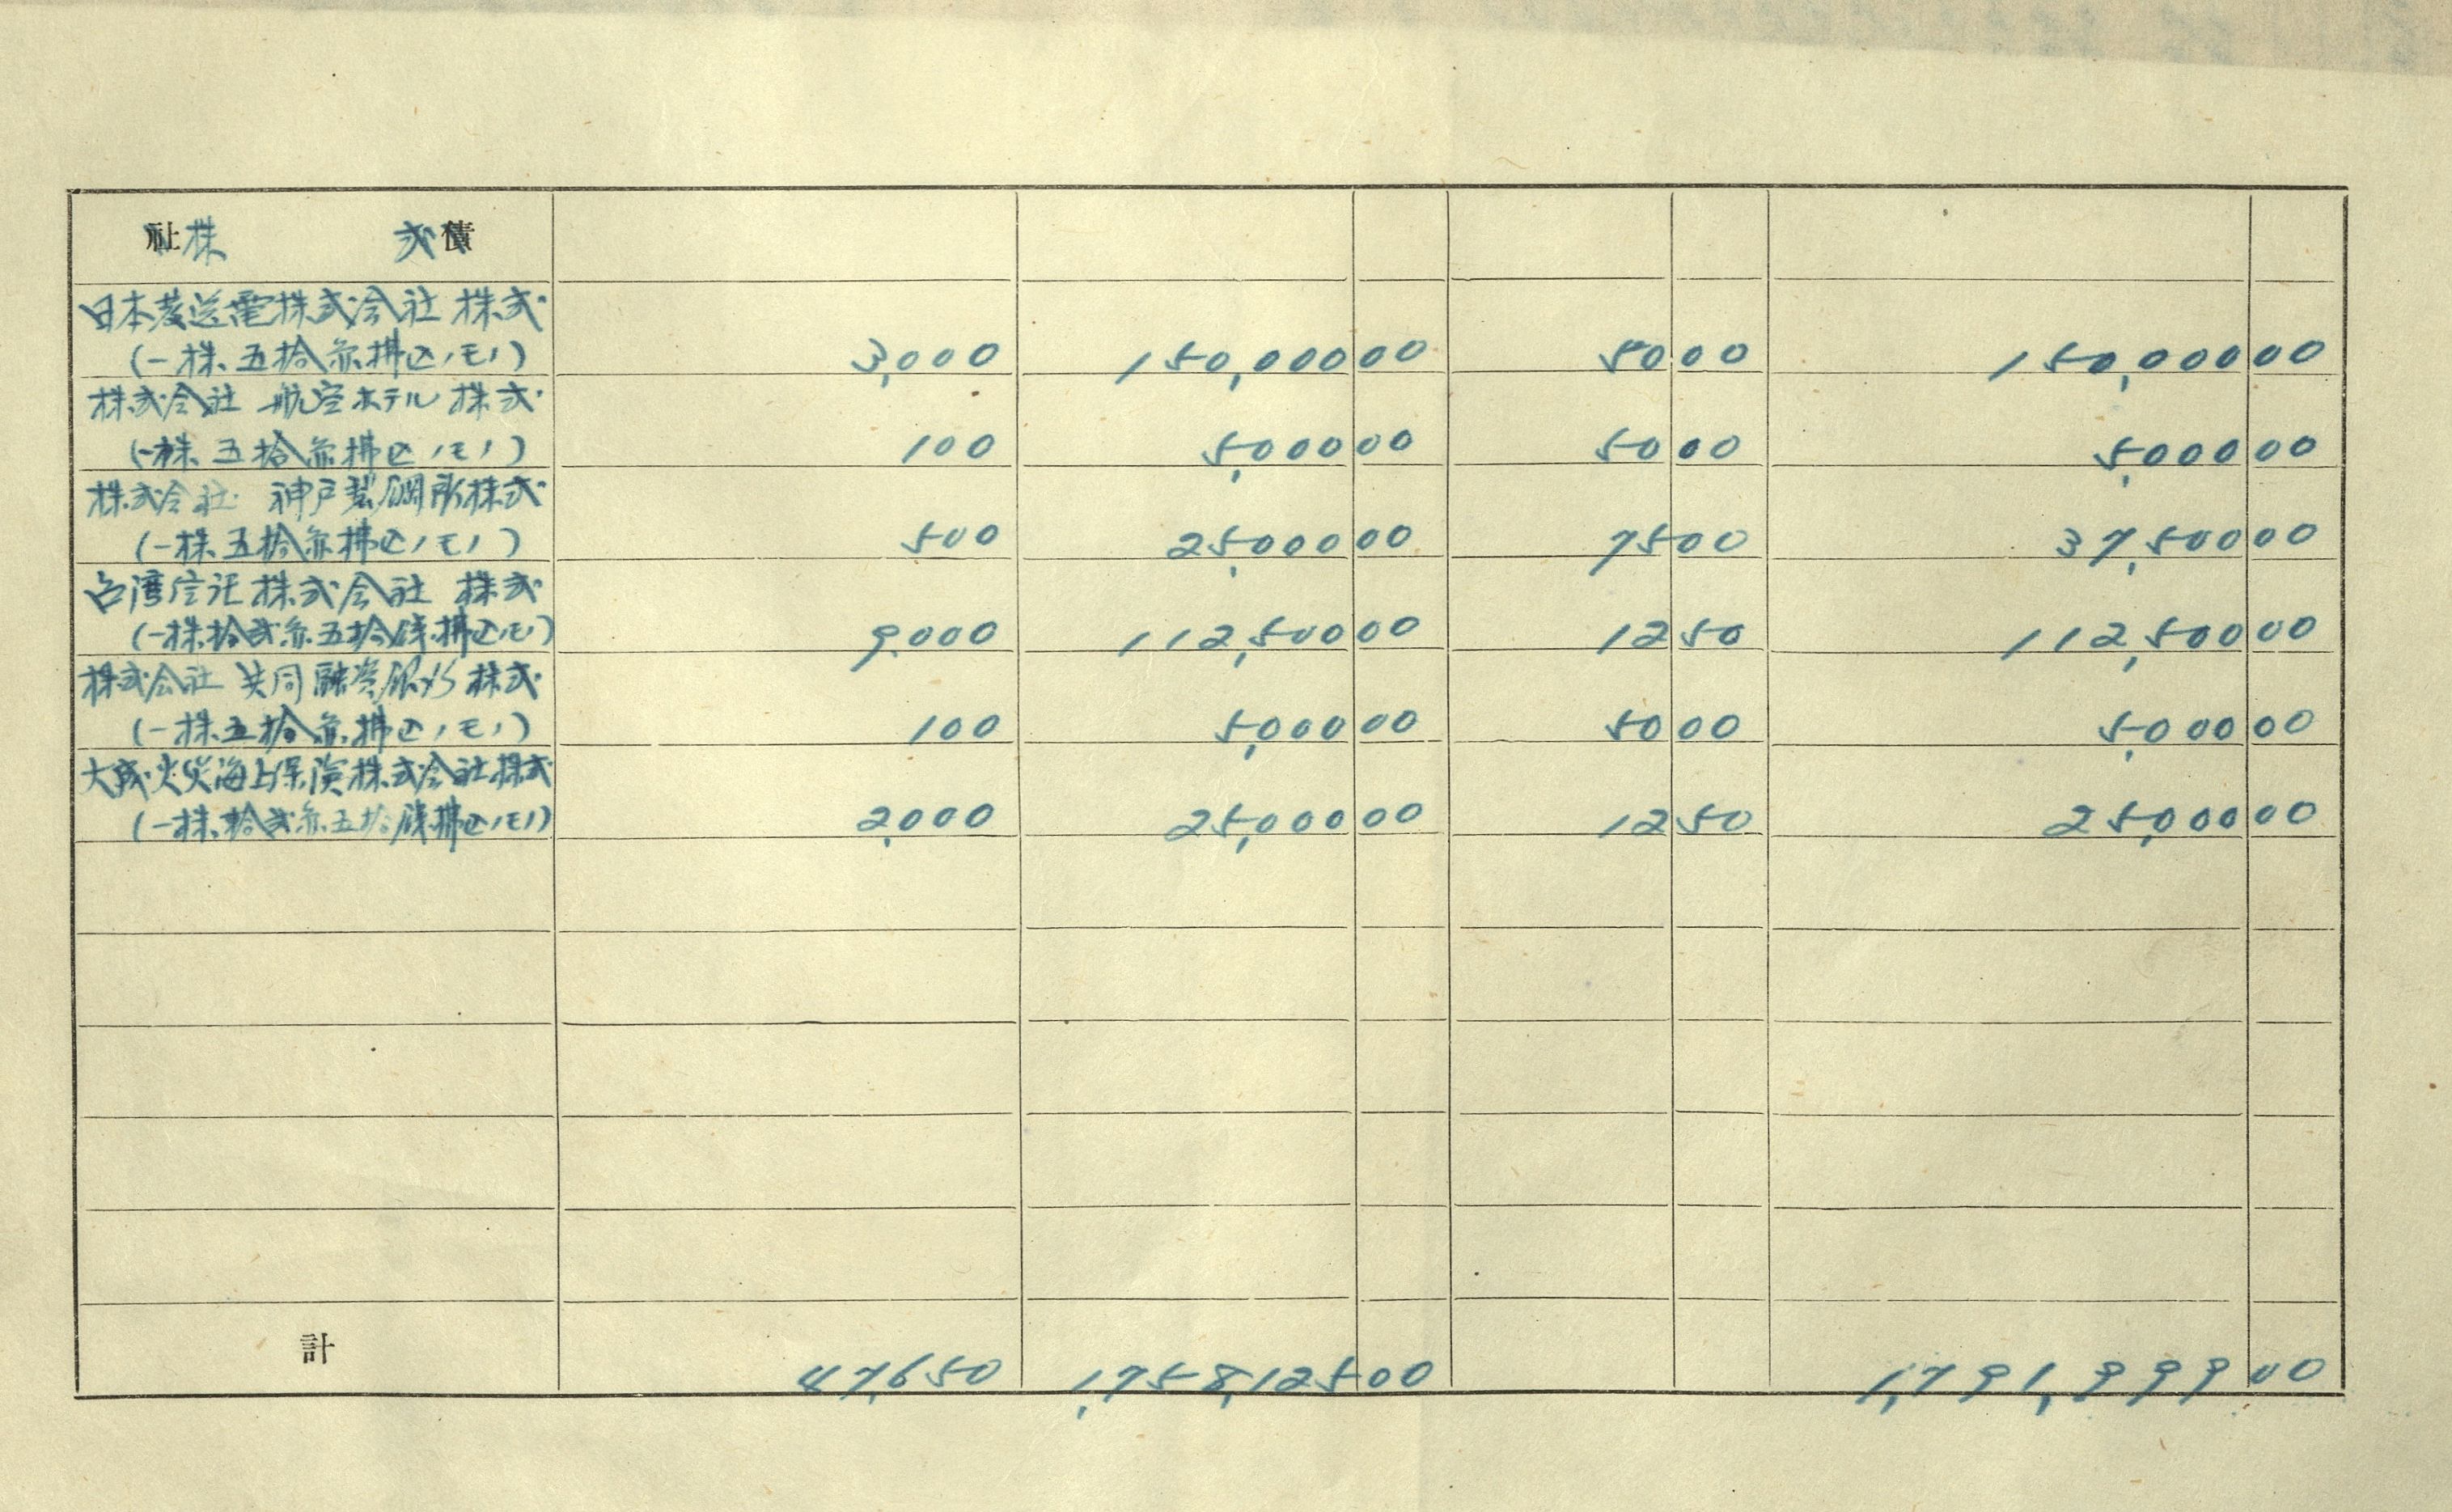 株 式
日本発送電株式会社 株式
(一株五拾円拂込ノモノ) 3,000 150,000 00 50 00 150,000 00
株式会社 航空ホテル 株式
(一株五拾円拂込ノモノ) 100 5,000 00 50 00 5,000 00
株式会社 神戸製鋼所株式
(一株五拾円拂込ノモノ) 500 25,000 00 75 00 37,500 00
台湾信託株式会社 株式
(一株拾弐円五拾銭拂込ノモノ) 9,000 112,500 00 12 50 112,500 00
株式会社 共同融資銀行 株式
(一株五拾円拂込ノモノ) 100 5,000 00 50 00 5,000 00
大成火災海上保険株式会社株式
(一株拾弐円五拾銭拂込ノモノ) 2,000 25,000 00 12 50 25,000 00
計 47,650 1,758,125 00 1,791,999 00